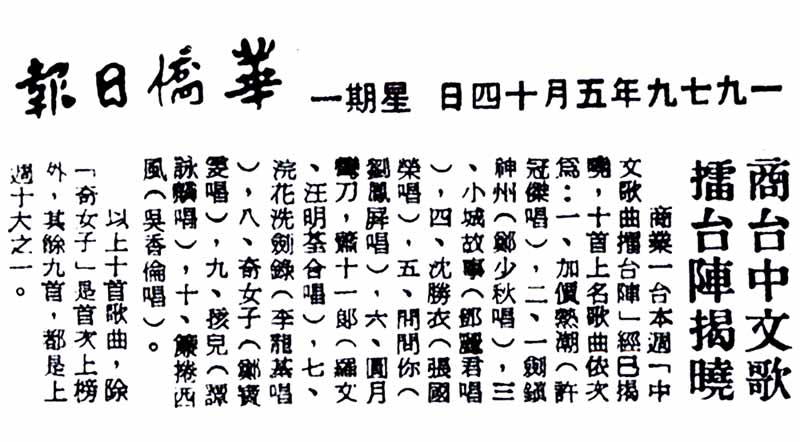 華僑日報
一九七九年五月十四日 星期一
商台中文歌
擂台陣揭曉
商業一台本週「中
文歌曲擂台陣」經已揭
曉,十首上名歌曲依次
為:一、加價熱潮(許
冠傑唱),二、一劍鎮
神州(鄭少秋唱),三
、小城故事(鄧麗君唱
),四、沈勝衣(張國
榮唱),五、問問你(
劉鳳屏唱),六、圓月
彎刀,蕭十一郎(羅文
、汪明荃合唱),七、
浣花洗劍錄(李龍基唱
),八、奇女子(鄭寶
雯唱),九、孩兒(譚
詠麟唱),十、簾捲西
風(吳香倫唱)。
以上十首歌曲,除
「奇女子」是首次上榜
外,其餘九首,都是上
週十大之一。